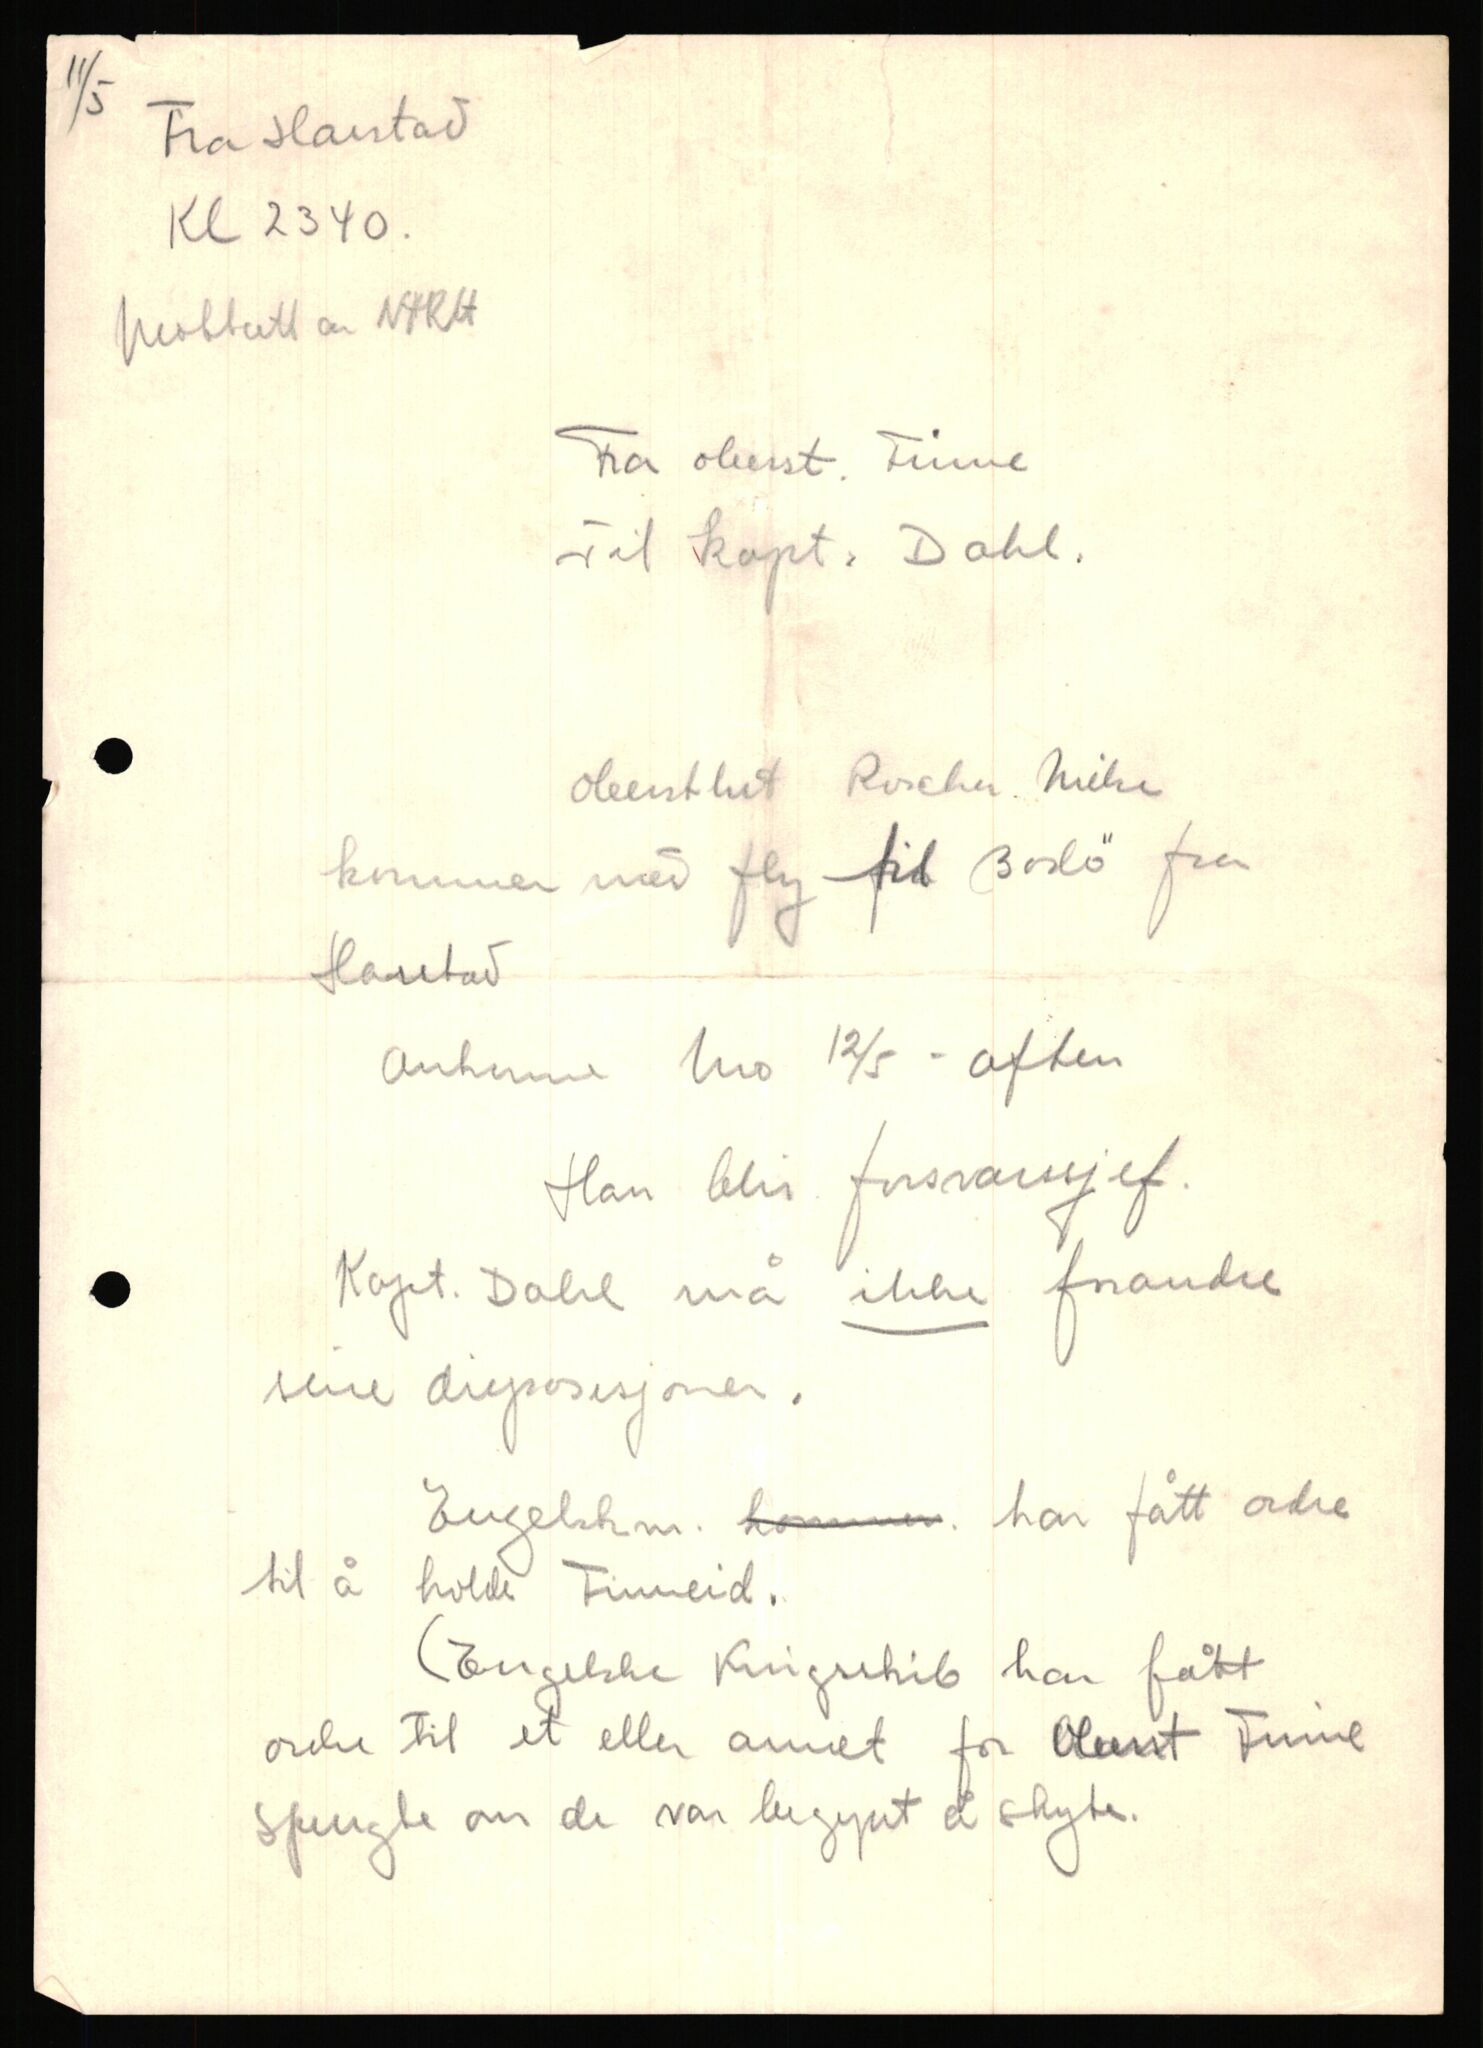 11/5
Fra Harstad
Kl 2340.
Mottatt av
Fra oberst. Finne
Til kapt. Dahl.
Oberstlut Roscher Nielsen
kommer med fly til Bodö fra
Harstad
Ankomme Mo 12/5 - aften
Han blir forsvarssjef.
Kapt. Dahl må ikke forandre
sine disposisjoner.
Engelskm. kommer. har fått ordre
til å holde Finneid.
(Engelske krigsskib har fått
ordre til et eller annet for Oberst Finne
spurgte om de var begynt å skyte.